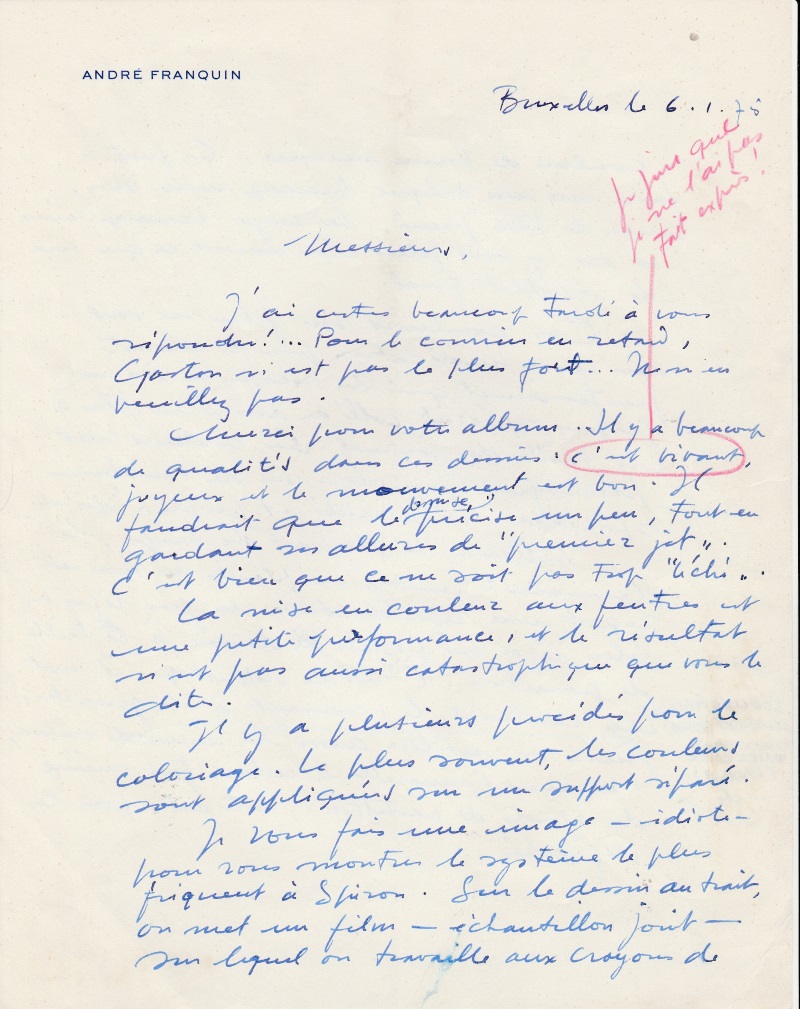 ANDRÉ FRANQUIN
Bruxelles le 6.1.75
Je jure que
je ne l'ai pas
fait exprès!
Messieurs,
J'ai certes beaucoup tardé à vous
répondre!... Pour le courrier en retard,
Gaston n'est pas le plus fort... Ne m'en
veuillez pas.
Merci pour votre album. Il y a beaucoup
de qualités dans ces dessins: c'est vivant,
joyeux et le mouvement est bon. Il
faudrait que le dessin se précise un peu, tout en
gardant ses allures de "premier jet".
C'est bien que ce ne soit pas trop "léché".
La mise en couleur aux feutres est
une petite performance, et le résultat
n'est pas aussi catastrophique que vous le
dites.
Il y a plusieurs procédés pour le
coloriage. Le plus souvent, les couleurs
sont appliquées sur un support séparé.
Je vous fais une image – idiote –
pour vous montrer le système le plus
fréquent à Spirou. Sur le dessin au trait,
on met un film – échantillon joint –
sur lequel on travaille aux crayons de